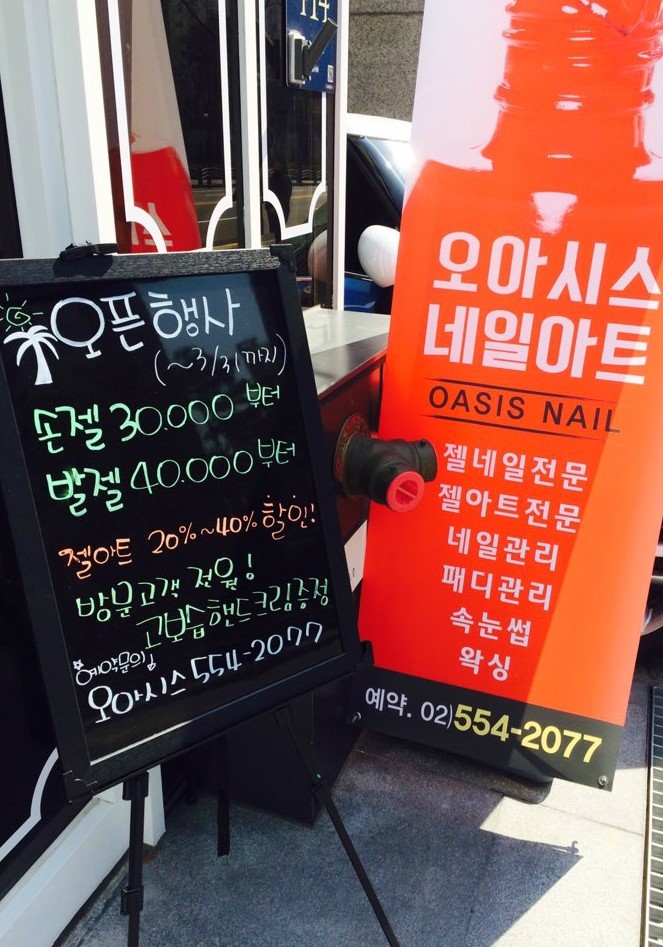 오픈행사
(~3/31까지)
손젤 30.000 부터
발젤 40.000 부터
젤아트 20%~40% 할인!
방문고객 전원!
고보습핸드크림증정
예약문의
오아시스 554-2077
오아시스
네일아트
OASIS NAIL
젤네일전문
젤아트전문
네일관리
패디관리
속눈썹
왁싱
예약. 02)554-2077